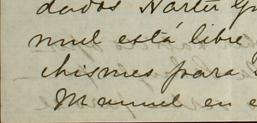 dados Harta
nuel está libre
chismes para
Manuel en e